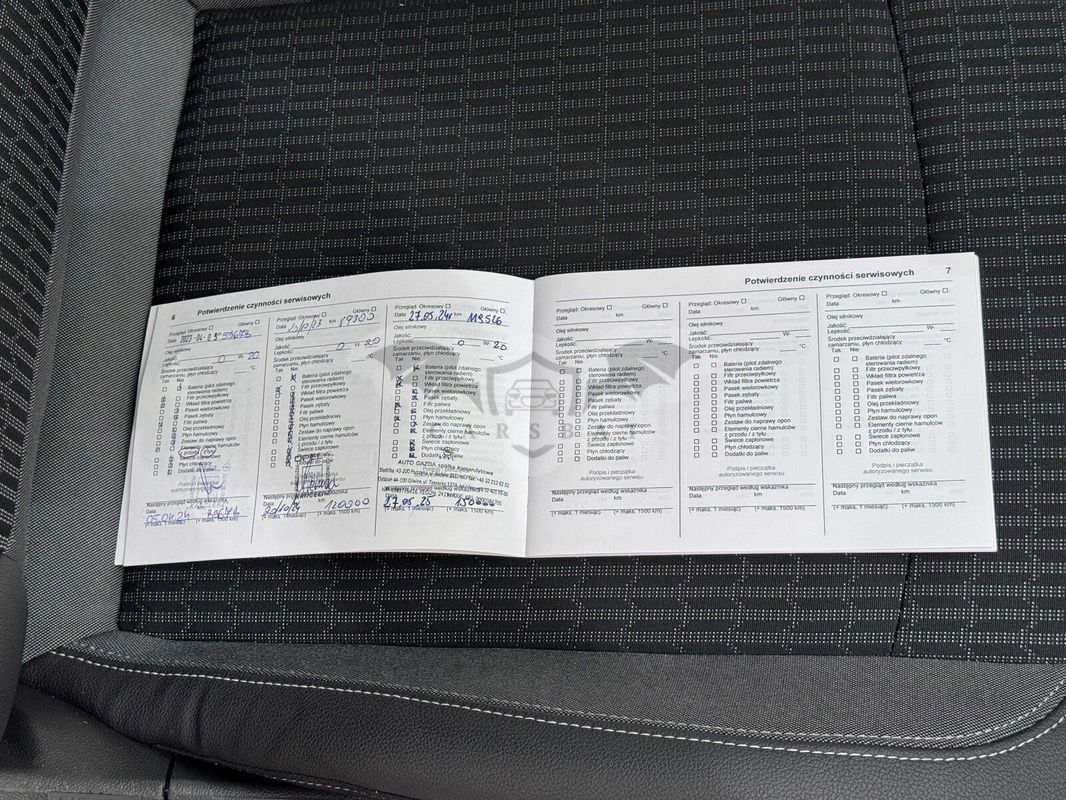 6 Potwierdzenie czynności serwisowych
Przegląd: Okresowy ☐ Główny ☐
Data 2023-04-0 59678
Olej silnikowy
Jakość:
Lepkość: 0 W- 20
Środek przeciwdziałający
zamarzaniu, płyn chłodzący
Tak Nie
Bateria (pilot zdalnego
sterowania radiem)
Filtr przeciwpyłkowy
Wkład filtra powietrza
Pasek wielorowkowy
Pasek zębaty
Filtr paliwa
Olej przekładniowy
Płyn hamulcowy
Zestaw do naprawy opon
Elementy cierne hamulców
z przodu / z tyłu
Świece zapłonowe
Płyn chłodzący
Dodatki do paliw
Podpis i pieczątka
autoryzowanego
Następny przegląd według wskaźnika
Data km
05.04.24
(+ maks. 1 miesiąc) (+ maks. 1500 km)
Przegląd: Okresowy ☐ Główny ☐
Data km
Olej silnikowy
Jakość:
Lepkość: 0 W- 20
Środek przeciwdziałający
zamarzaniu, płyn chłodzący
Tak Nie
Bateria (pilot zdalnego
sterowania radiem)
Filtr przeciwpyłkowy
Wkład filtra powietrza
Pasek wielorowkowy
Pasek zębaty
Filtr paliwa
Olej przekładniowy
Płyn hamulcowy
Zestaw do naprawy opon
Elementy cierne hamulców
z przodu / z tyłu
Świece zapłonowe
Płyn chłodzący
Dodatki do paliw
Następny przegląd według wskaźnika
120000
(+ maks. 1 miesiąc) (+ maks. 1500 km)
Przegląd: Okresowy ☐ Główny ☐
Data 27.05.24r km 119526
Olej silnikowy
Jakość:
Lepkość: 0 W- 20
Środek przeciwdziałający
zamarzaniu, płyn chłodzący °C
Tak Nie
Bateria (pilot zdalnego
sterowania radiem)
Filtr przeciwpyłkowy
Wkład filtra powietrza
Pasek wielorowkowy
Pasek zębaty
Filtr paliwa
Olej przekładniowy
Płyn hamulcowy
Zestaw do naprawy opon
Elementy cierne hamulców
z przodu / z tyłu
Świece zapłonowe
Płyn chłodzący
Dodatki do paliw
AUTO GAZDA spółka komandytowa
27.05.25 150000
(+ maks. 1 miesiąc) (+ maks. 1500 km)
Potwierdzenie czynności serwisowych 7
Przegląd: Okresowy ☐ Główny ☐
Data km
Olej silnikowy
Jakość:
Lepkość: W-
Środek przeciwdziałający
zamarzaniu, płyn chłodzący °C
Tak Nie
Bateria (pilot zdalnego
sterowania radiem)
Filtr przeciwpyłkowy
Wkład filtra powietrza
Pasek wielorowkowy
Pasek zębaty
Filtr paliwa
Olej przekładniowy
Płyn hamulcowy
Zestaw do naprawy opon
Elementy cierne hamulców
z przodu / z tyłu
Świece zapłonowe
Płyn chłodzący
Dodatki do paliw
Podpis i pieczątka
autoryzowanego serwisu
Następny przegląd według wskaźnika
Data km
(+ maks. 1 miesiąc) (+ maks. 1500 km)
Przegląd: Okresowy ☐ Główny ☐
Data km
Olej silnikowy
Jakość:
Lepkość: W-
Środek przeciwdziałający
zamarzaniu, płyn chłodzący °C
Tak Nie
Bateria (pilot zdalnego
sterowania radiem)
Filtr przeciwpyłkowy
Wkład filtra powietrza
Pasek wielorowkowy
Pasek zębaty
Filtr paliwa
Olej przekładniowy
Płyn hamulcowy
Zestaw do naprawy opon
Elementy cierne hamulców
z przodu / z tyłu
Świece zapłonowe
Płyn chłodzący
Dodatki do paliw
Podpis i pieczątka
autoryzowanego serwisu
Następny przegląd według wskaźnika
Data km
(+ maks. 1 miesiąc) (+ maks. 1500 km)
Przegląd: Okresowy ☐ Główny ☐
Data km
Olej silnikowy
Jakość:
Lepkość: W-
Środek przeciwdziałający
zamarzaniu, płyn chłodzący °C
Tak Nie
Bateria (pilot zdalnego
sterowania radiem)
Filtr przeciwpyłkowy
Wkład filtra powietrza
Pasek wielorowkowy
Pasek zębaty
Filtr paliwa
Olej przekładniowy
Płyn hamulcowy
Zestaw do naprawy opon
Elementy cierne hamulców
z przodu / z tyłu
Świece zapłonowe
Płyn chłodzący
Dodatki do paliw
Podpis i pieczątka
autoryzowanego serwisu
Następny przegląd według wskaźnika
Data km
(+ maks. 1 miesiąc) (+ maks. 1500 km)